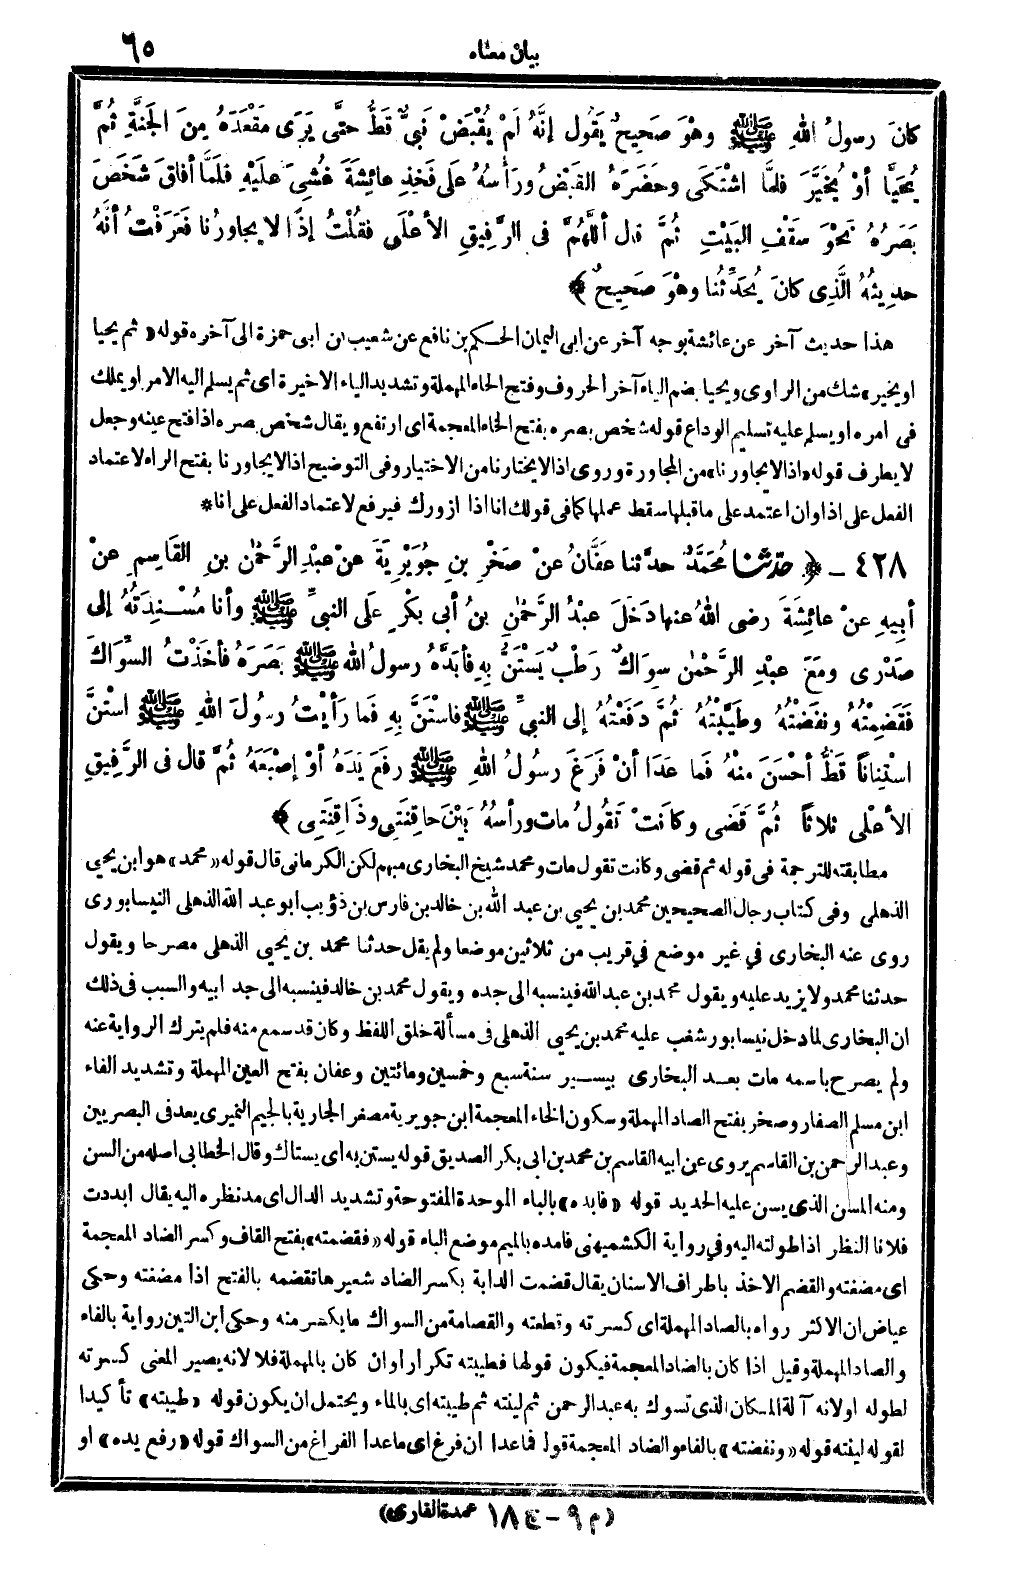 بيان معناه
٦٥
كانَ رسولُ اللهِ ﷺ وهْوَ صَحِيحٌ يَقُول إنَّهُ لَمْ يُقْبَضْ نَبِيٌّ قَطُّ حتَّى يَرَى مَقْعَدَهُ مِنَ الجَنَّةِ ثُمَّ
يُحَيَّا أوْ يُخَيَّرَ فلمَّا اشْتَكَى وحَضَرَهُ القَبْضُ ورَأسُهُ علَى فَخِذِ عائِشَةَ غُشِيَ علَيْهِ فلَمَّا أفاقَ شَخَصَ
بَصَرُهُ نَحْوَ سَقْفِ البَيْتِ ثُمَّ قال أللَّهُمَّ في الرَّفِيقِ الأعْلَى فقُلْتُ إذًا لا يجاوِرُنا فعَرَفْتُ أنَّهُ
حدِيثُهُ الَّذِى كانَ يُحَدِّثُنا وهْوَ صَحِيحٌ ﴾
هذا حديث آخر عن عائشة بوجه آخر عن ابى اليمان الحكم بن نافع عن شعيب بن ابى حمزة الى آخره قوله «ثم يحيا
او يخير» شك من الراوى ويحيا بضم الياء آخر الحروف وفتح الحاء المهملة وتشديد الياء الاخيرة اى ثم يسلم اليه الامر او يملك
فى امره او يسلم عليه تسليم الوداع قوله شخص بصره بفتح الخاء المعجمة اى ارتفع ويقال شخص بصره اذا فتح عينه وجعل
لا يطرف قوله «اذا لا يجاورنا» من المجاورة وروى اذا لا يختارنا من الاختيار وفى التوضيح اذا لا يجاورنا بفتح الراء لاعتماد
الفعل على اذا وان اعتمد على ما قبلها سقط عملها كما فى قولك انا اذا ازورك فيرفع لاعتماد الفعل على انا *
٤٢٨ ـ ﴿ حدَّثنا مُحَمَّدٌ حدَّثنا عفَّانُ عنْ صَخْرِ بنِ جُوَيْرِيَةَ عنْ عبْدِ الرَّحْمٰنِ بنِ القَاسِمِ عنْ
أبِيهِ عنْ عائِشَةَ رضى اللهُ عنها دَخَلَ عبْدُ الرَّحْمٰنِ بنُ أبى بكْرٍ علَى النبيِّ ﷺ وأنا مُسْنِدَتُهُ إلى
صَدْرِى ومَعَ عبْدِ الرَّحْمٰنِ سِواكٌ رَطْبٌ يَسْتَنُّ بِهِ فأبَدَّهُ رسولُ اللهِ ﷺ بَصَرَهُ فأخَذْتُ السِّوَاكَ
فقَضِمْتُهُ ونفَضْتُهُ وطَيَّبْتُهُ ثُمَّ دَفَعْتُهُ إلى النبيِّ ﷺ فاسْتَنَّ بِهِ فَما رَأيْتُ رسُولَ اللهِ ﷺ اسْتنَّ
اسْتِناناً قَطُّ أحْسَنَ مِنْهُ فَما عَدَا أنْ فَرَغَ رسولُ اللهِ ﷺ رفَعَ يَدَهُ أوْ إصْبَعَهُ ثُمَّ قال فى الرَّفِيقِ
الأعْلى ثلاثاً ثُمَّ قَضَى وكانَتْ تَقُولُ مات ورأسُهُ بَيْنَ حاقِنَتِى وذَاقِنَتِى ﴾
مطابقته للترجمة فى قوله ثم قضى وكانت تقول مات ومحمد شيخ البخارى مبهم لكن الكرمانى قال قوله «محمد» هو ابن يحيى
الذهلى وفى كتاب رجال الصحيحين محمد بن يحيى بن عبد الله بن خالد بن فارس بن ذؤيب ابو عبد الله الذهلى النيسابورى
روى عنه البخارى في غير موضع في قريب من ثلاثين موضعا ولم يقل حدثنا محمد بن يحيى الذهلى مصرحا ويقول
حدثنا محمد ولا يزيد عليه ويقول محمد بن عبد الله فينسبه الى جده ويقول محمد بن خالد فينسبه الى جد ابيه والسبب فى ذلك
ان البخارى لما دخل نيسابور شغب عليه محمد بن يحيى الذهلى فى مسألة خلق اللفظ وكان قد سمع منه فلم يترك الرواية عنه
ولم يصرح باسمه مات بعد البخارى بيسير سنة سبع وخمسين ومائتين وعفان بفتح العين المهملة وتشديد الفاء
ابن مسلم الصفار وصخر بفتح الصاد المهملة وسكون الخاء المعجمة ابن جويرية مصغر الجارية بالجيم النميرى يعد فى البصريين
وعبد الرحمن بن القاسم يروى عن ابيه القاسم بن محمد بن ابى بكر الصديق قوله يستن به اى يستاك وقال الخطابى اصله من السن
ومنه المسن الذى يسن عليه الحديد قوله «فابده» بالباء الموحدة المفتوحة وتشديد الدال اى مد نظره اليه يقال ابددت
فلانا النظر اذا طولته اليه وفي رواية الكشميهنى فامده بالميم موضع الباء قوله «فقضمته» بفتح القاف وكسر الضاد المعجمة
اى مضغته والقضم الاخذ باطراف الاسنان يقال قضمت الدابة بكسر الضاد شعيرها تقضمه بالفتح اذا مضغته وحكى
عياض ان الاكثر رواه بالصاد المهملة اى كسرته وقطعته والقصامة من السواك ما يكسر منه وحكى ابن التين رواية بالفاء
والصاد المهملة وقيل اذا كان بالضاد المعجمة فيكون قولها فطيبته تكرارا وان كان بالمهملة فلا لانه يصير المعنى كسرته
لطوله او لانه آلة المكان الذى تسوك به عبد الرحمن ثم لينته ثم طيبته اى بالماء ويحتمل ان يكون قوله «طيبته» تأكيدا
لقوله لينته قوله «ونفضته» بالفاء والضاد المعجمة قوله فما عدا ان فرغ اى ما عدا الفراغ من السواك قوله «رفع يده» او
(م ٩ ـ ج ١٨ عمدة القارى)